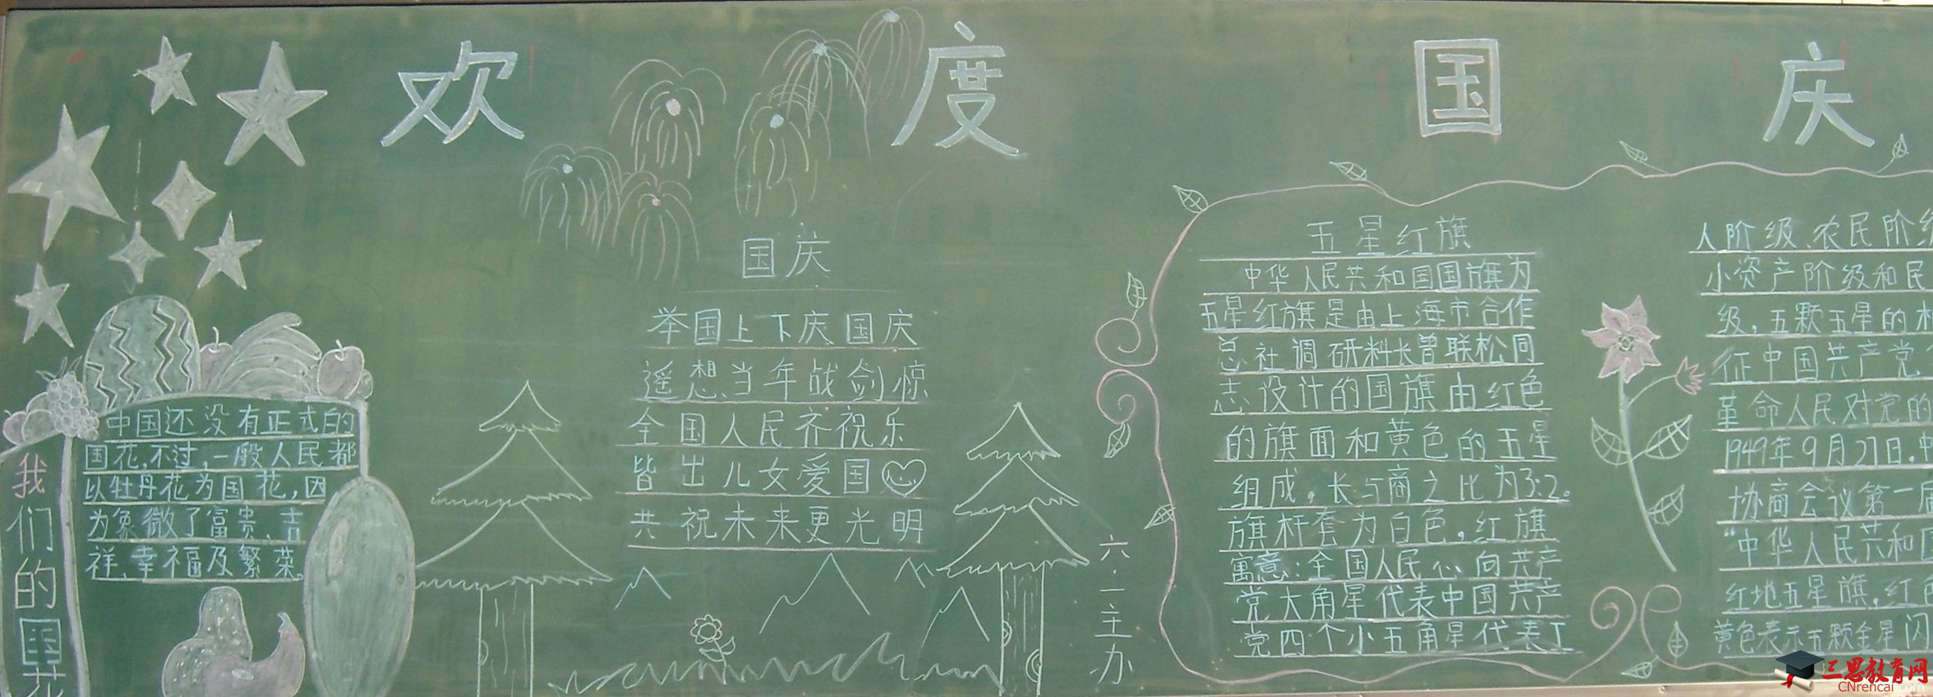 欢度国庆
我们的国花
中国还没有正式的
国花,不过,一般人民都
以牡丹花为国花,因
为象微了富贵、吉
祥、幸福及繁荣。
国庆
举国上下庆国庆
遥想当年战剑惊
全国人民齐祝乐
皆出儿女爱国
共祝未来更光明
六.一主办
五星红旗
中华人民共和国国旗为
五星红旗是由上海市合作
总社调研料长曾联松同
志设计的国旗由红色
的旗面和黄色的五星
组成,长与商之比为3:2。
旗杆套为白色,红旗
寓意:全国人民心向共产
党大角星代表中国共产
党四个小五角星代表工
人阶级、农民阶
小资产阶级和民
级,五颗五星的
征中国共产党
革命人民对党的
1949年9月27日,中
协商会议第一届
“中华人民共和国
红地五星旗,红色
黄色表示五颗金星闪
三思教育网
CNrencai